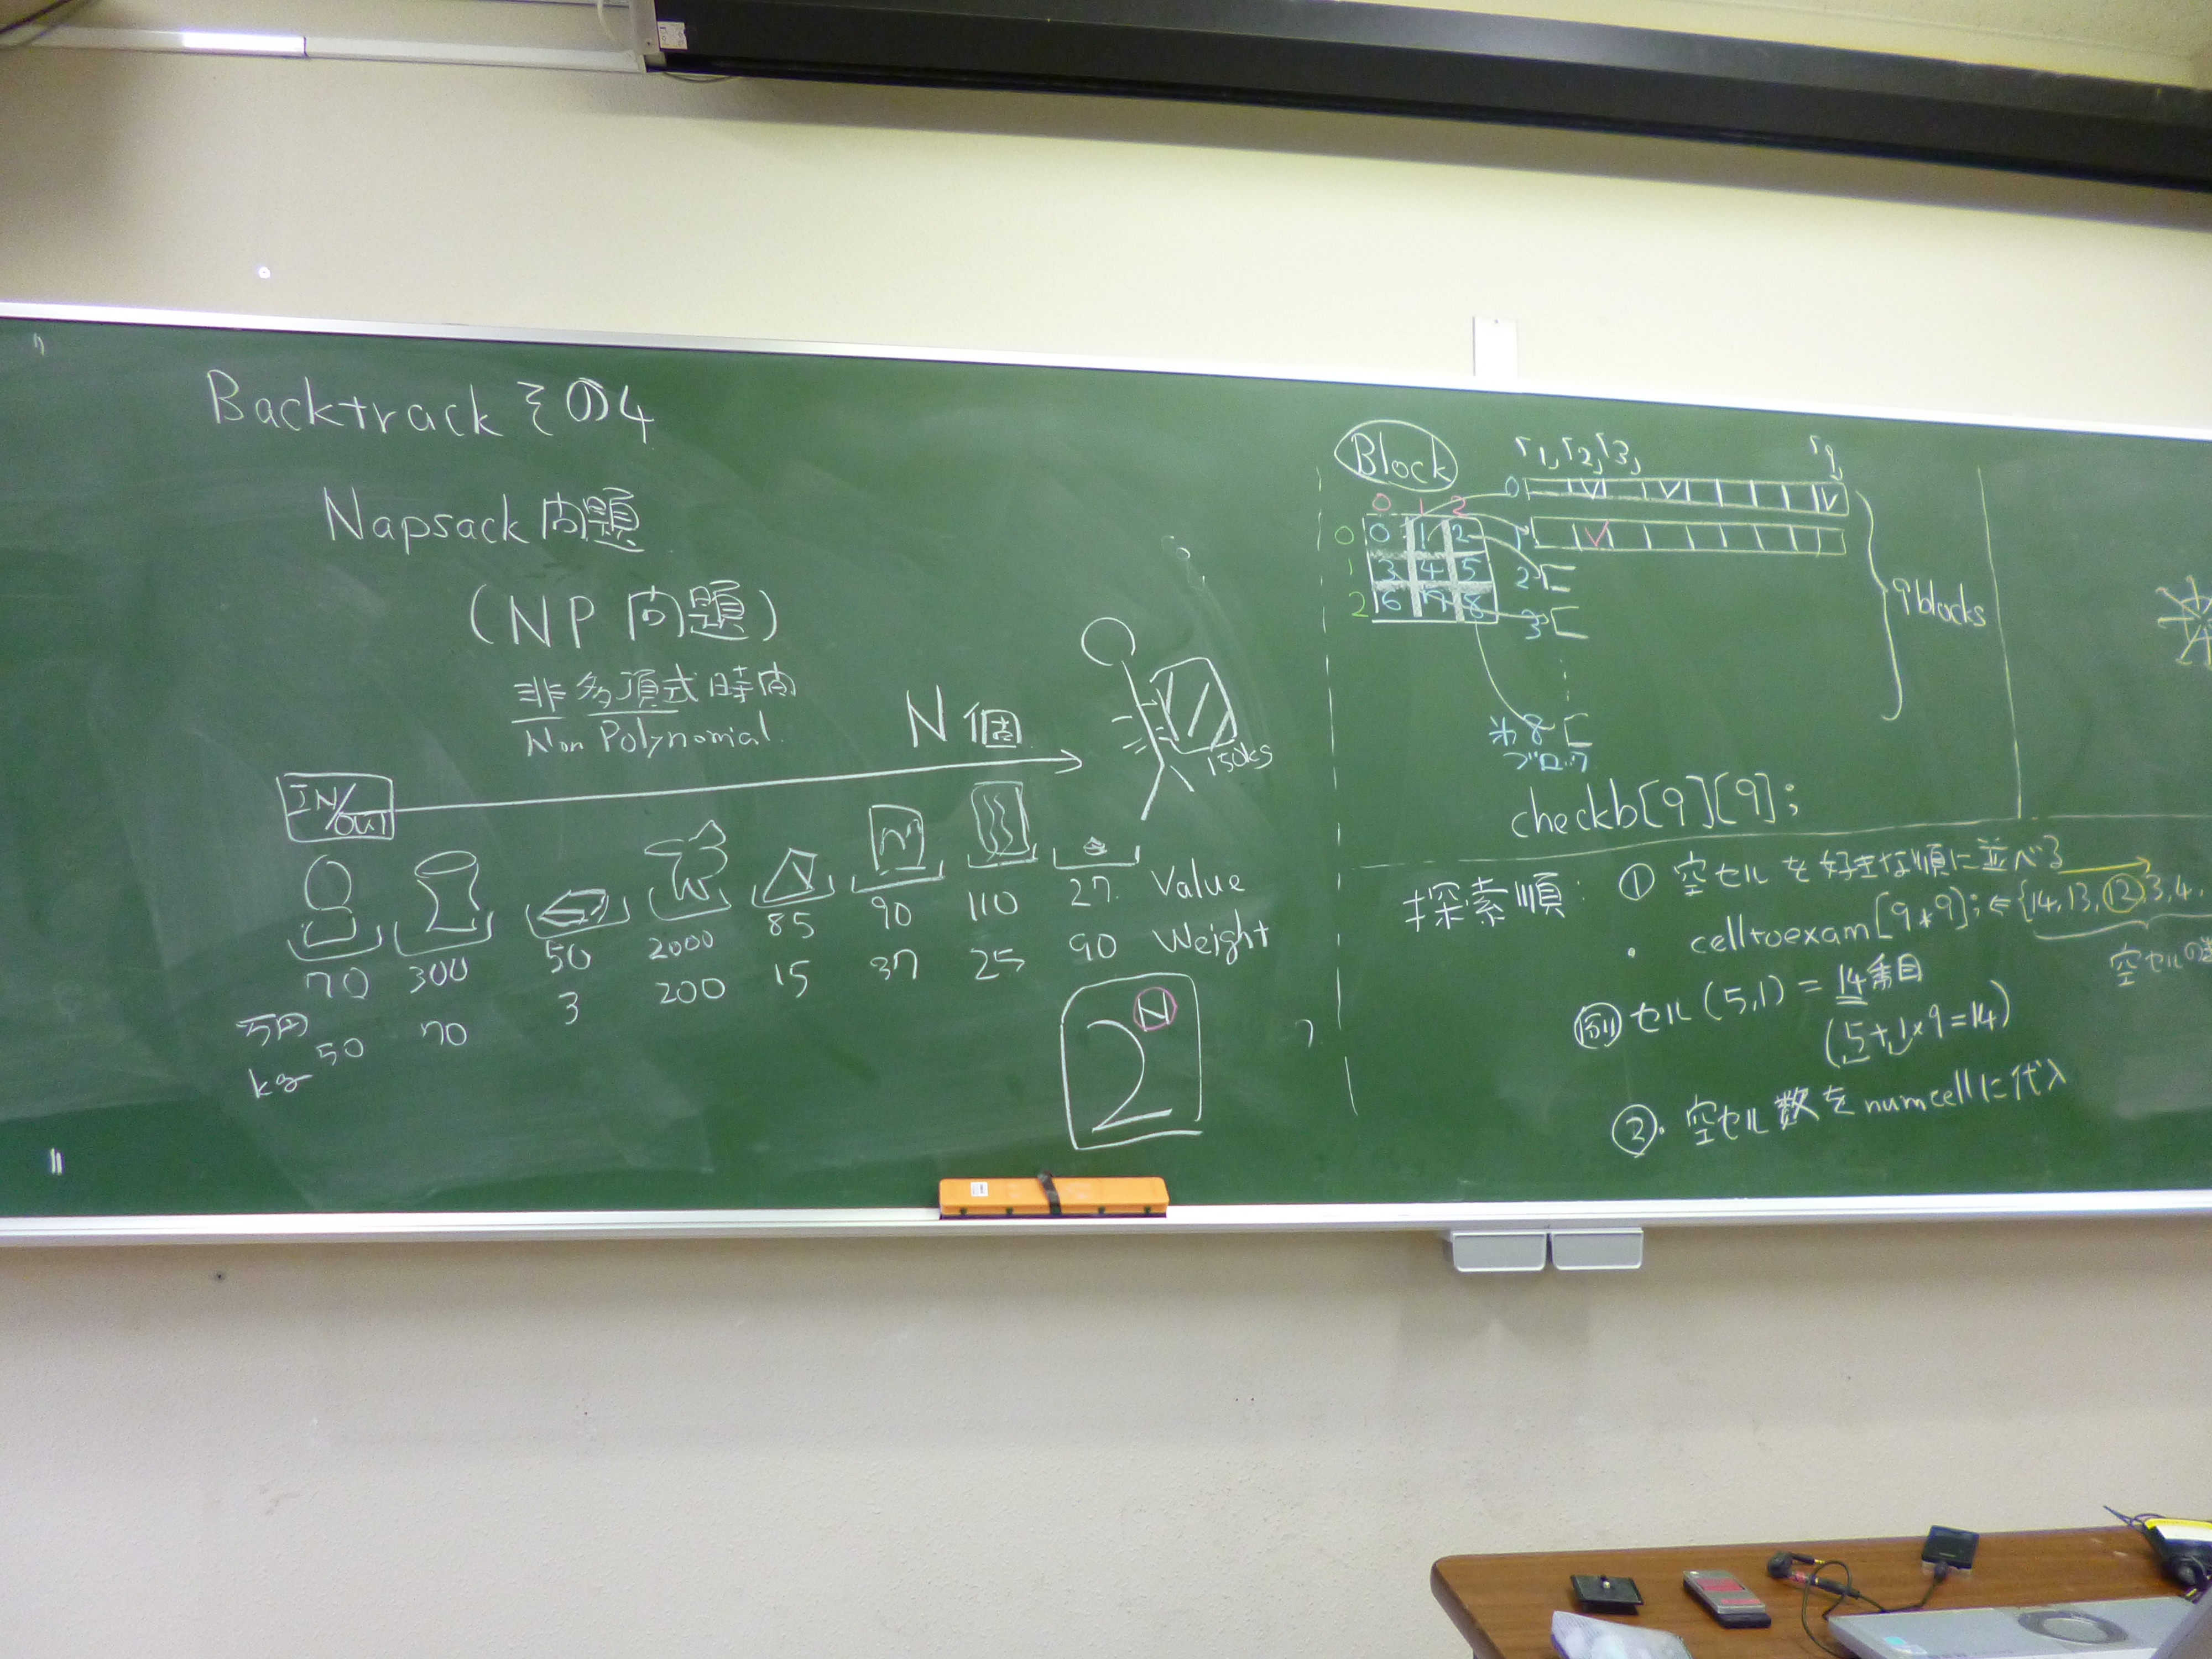 Backtrack その4
Napsack 問題
(NP 問題)
非多項式時間
Non Polynomial
N個
150kg
IN/OUT
70 300 50 2000 85 90 110 27 Value
万円
50 70 3 200 15 37 25 90 Weight
kg
2^N
Block
r1, r2, r3, r9
0 1 2
0 0 1 2
1 3 4 5
2 6 7 8
0
1
2
3
8
ブロック
9 blocks
checkb[9][9];
探索順:
① 空セルを好きな順に並べる
・ celltoexam[9*9]; ⇐ {14, 13, 12, 3, 4,
空セルの
例 セル(5,1) = 14番目
(5+1×9=14)
②・ 空セル数をnumcellに代入